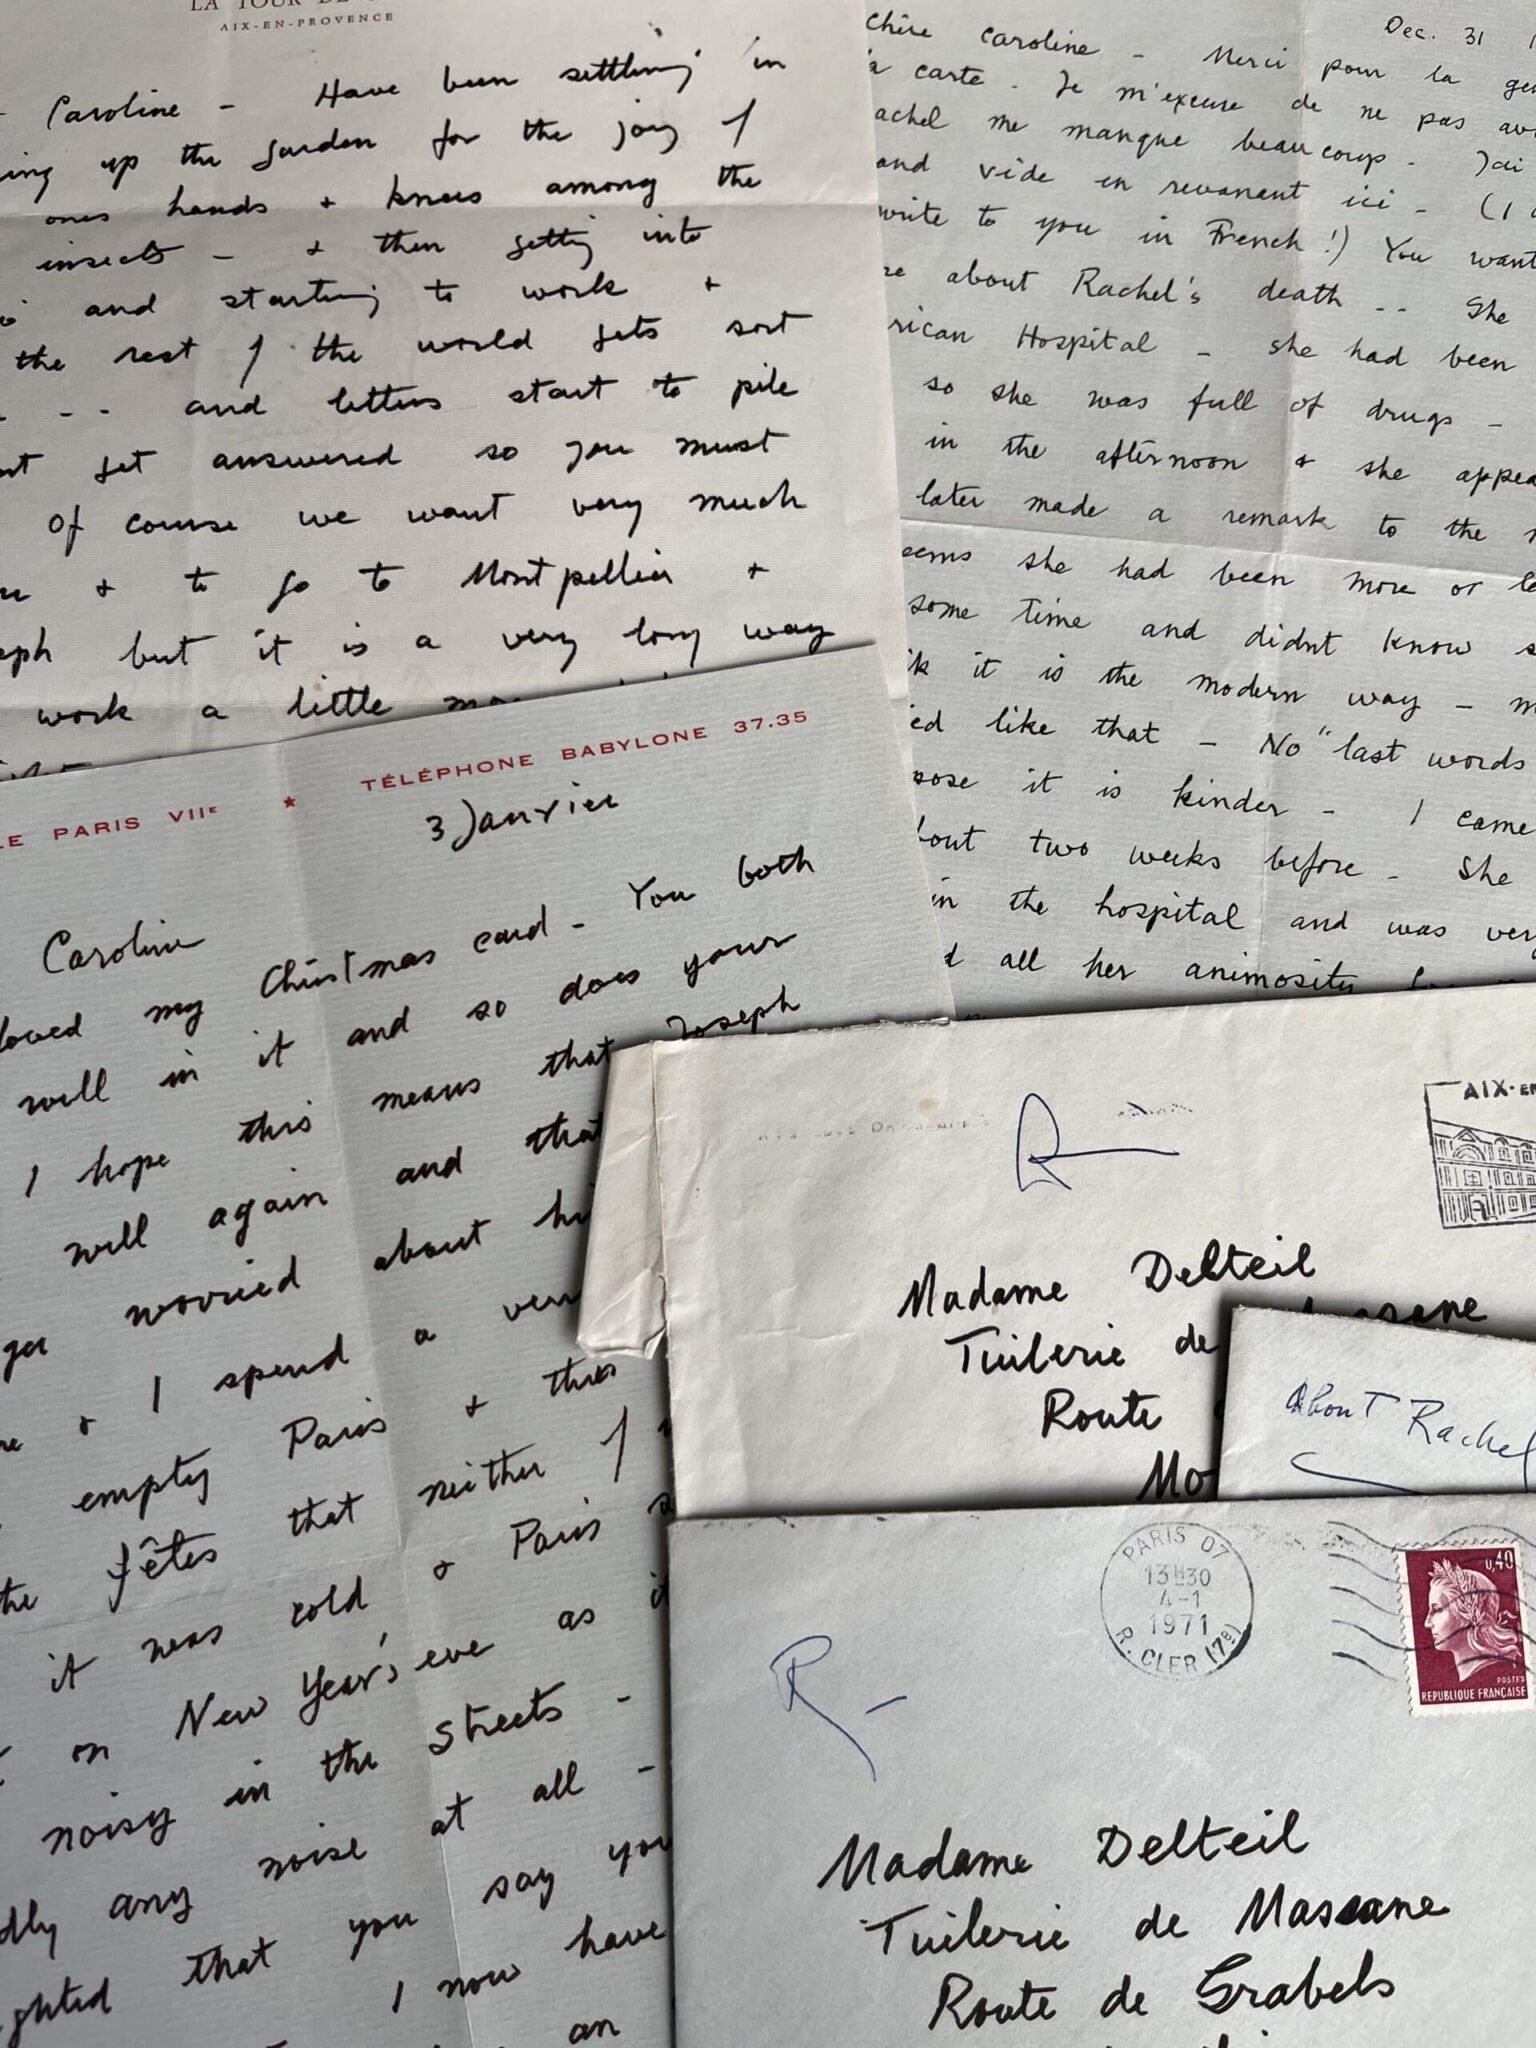 LA TOUR DE
AIX-EN-PROVENCE
Caroline - Have been settling in
ing up the garden for the joy of
ones hands + knees among the
insects - + then getting into
and starting to work +
the rest of the world gets sort
-- and letters start to pile
get answered so you must
Of course we want very much
+ to go to Montpellier +
but it is a very long way
work a little
Dec. 31
chère caroline - Merci pour la
carte. Je m'excuse de ne pas
achel me manque beaucoup - J'ai
and vide en revenant ici - (I
write to you in French!) You want
about Rachel's death -- She
rican Hospital - she had been
so she was full of drugs -
in the afternoon + she
later made a remark to the
eems she had been more or
some time and didnt know
it is the modern way -
ied like that - No "last words
pose it is kinder - I came
bout two weeks before - She
in the hospital and was
all her animosity
LE PARIS VIIe ★ TÉLÉPHONE BABYLONE 37.35
3 Janvier
Caroline
loved my Christmas card - You both
well in it and so does your
I hope this means that Joseph
will again and that
worried about
+ I spend a
empty Paris + this
the fêtes that neither of
it was cold + Paris
on New Year's eve as
noisy in the streets -
any noise at all -
ghted that you say you
I now have
an
R
AIX-EN
Madame Delteil
Tuilerie de
Route
Mo
About Rachel
R-
PARIS 07
13H30
4-1
1971
R. CLER (7e)
0,40
POSTES
REPUBLIQUE FRANÇAISE
Madame Delteil
Tuilerie de Massane
Route de Grabels